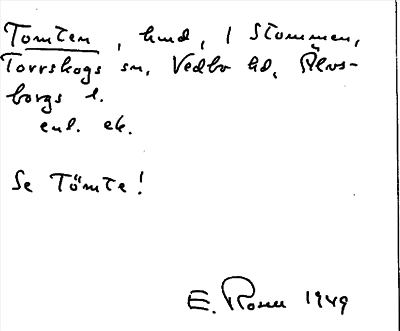 Tomten, hmd, 1 Stommen,
Torrskogs sn, Vedbo hd, Älvs-
borgs l.
enl. ek.
Se Tömte!
E. Rosell 1949